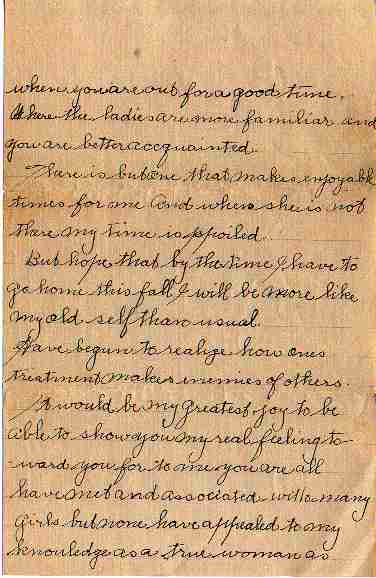 when you are out for a good time.
Where the ladies are more familiar and
you are better acquainted.
There is but one that makes enjoyable
times for me and when she is not
there my time is spoiled.
But hope that by the time I have to
go home this fall I will be more like
my old self than usual.
Have begun to realize how ones
treatment makes enemies of others.
It would be my greatest joy to be
able to show you my real feeling to-
ward you for to me you are all
have met and associated with many
girls but none have appealed to my
knowledge as a true woman as